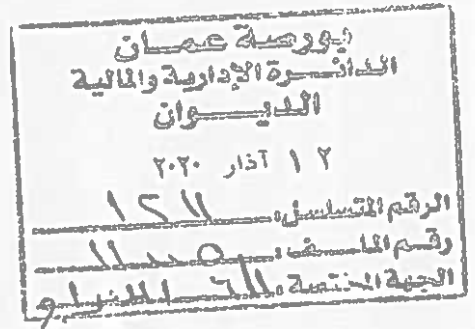 بورصة عمان
الدائرة الإدارية والمالية
الديوان
١٢ آذار ٢٠٢٠
الرقم المتسلسل: ١٢١١
رقم الملف:
الجهة المختصة: